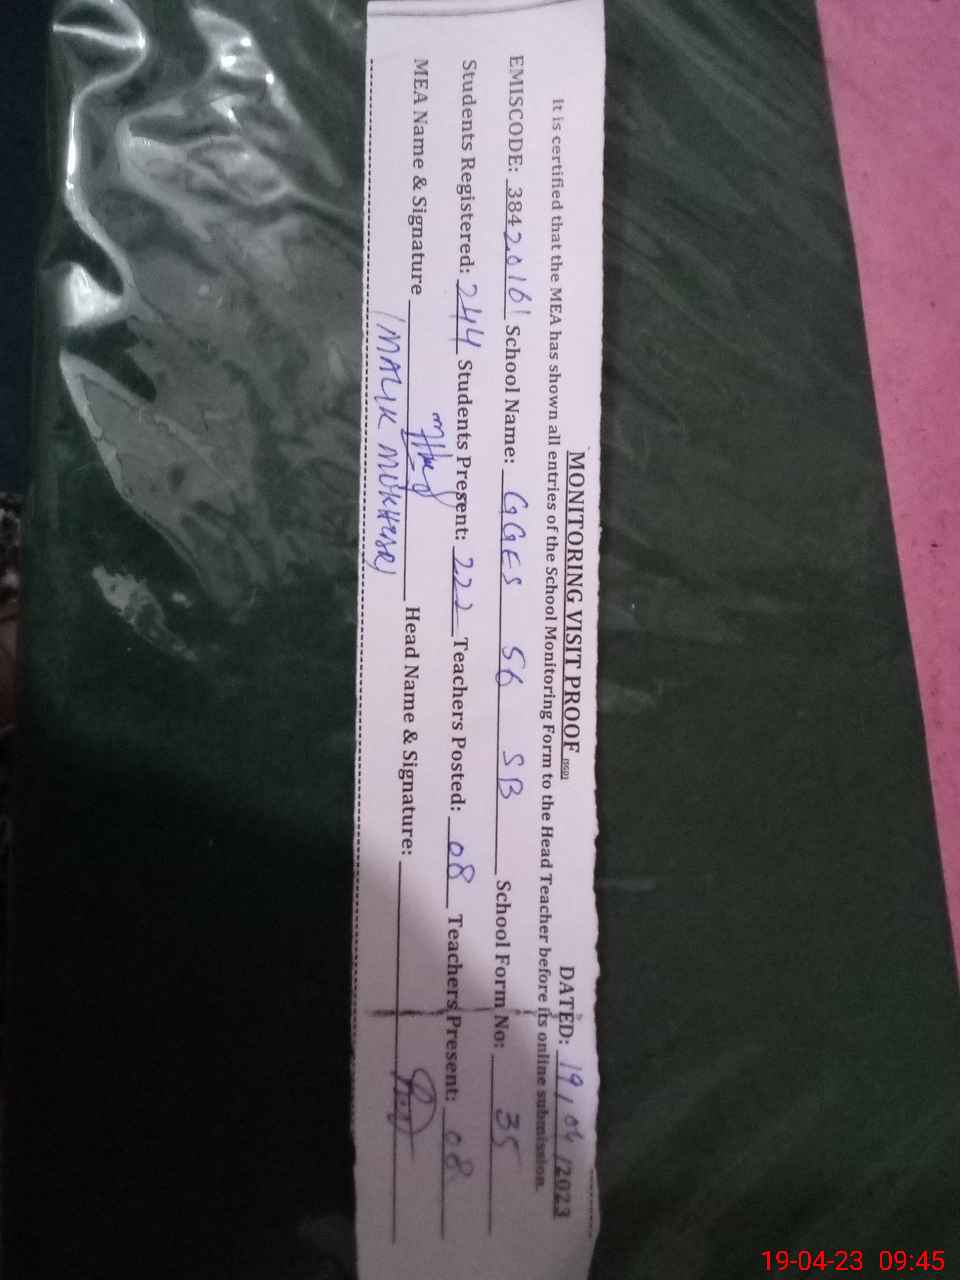 MONITORING VISIT PROOF DATED: 19/04/2023
It is certified that the MEA has shown all entries of the School Monitoring Form to the Head Teacher before its online submission.
EMISCODE: 38420161 School Name: GGES 56 SB School Form No: 35
Students Registered: 244 Students Present: 222 Teachers Posted: 08 Teachers Present: 08
MEA Name & Signature Head Name & Signature:
(MALIK MUKHTAR)
19-04-23 09:45